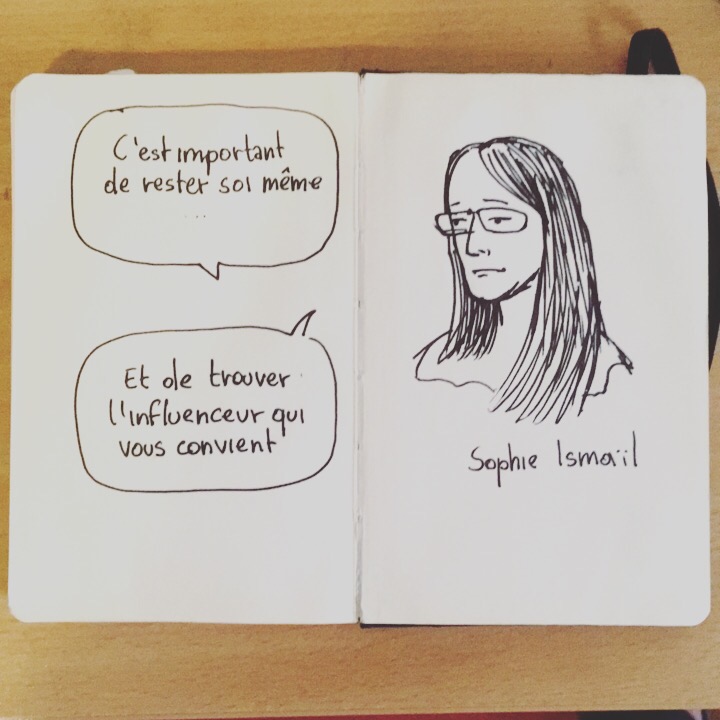 C'est important
de rester soi même
...
Et de trouver
l'influenceur qui
vous convient
Sophie Ismaïl